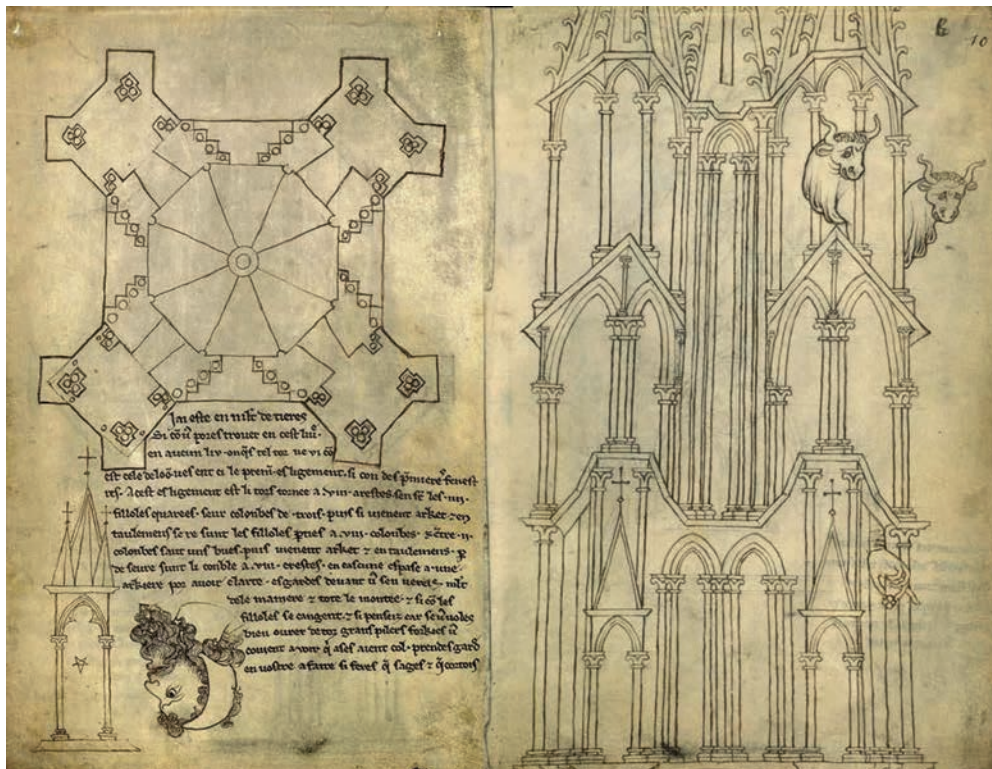 J'ai este en mlt' de tieres
Si cō v' pores trover en cest liv'.
en aucun liv. onq̄s tel tor ne vi cō
est cele de loō. ves ent ci le premī. esligement. si con des p'miereˢ fenest
res. A cest esligement est li tors tornee a .viii. arestes. sen sē les .iiii.
filloles quarees. seur colonbes de .trois. puis si vienent arket ⁊ en
taulemens se re sunt les filloles p'ties a .viii. colonbes. ⁊ ētre .ii.
colonbes saut uns bues. puis vienent arket ⁊ en taulemens. p'
de seure sunt li conble a .viii. crestes. en cascune espase a une.
arkiere por avoir clarte. esgardes devant v' sen vereis. mlt'
dele maniere ⁊ tote le montee. ⁊ si cō les
filloles se cangent. ⁊ si penseiz car se v' voles
bien ovrer de toz grans pilers forkies v'
covient avoir q̄ ases aient col. prendes gard
en vostre afaire si feres q̄ sages ⁊ q̄ cortois
10